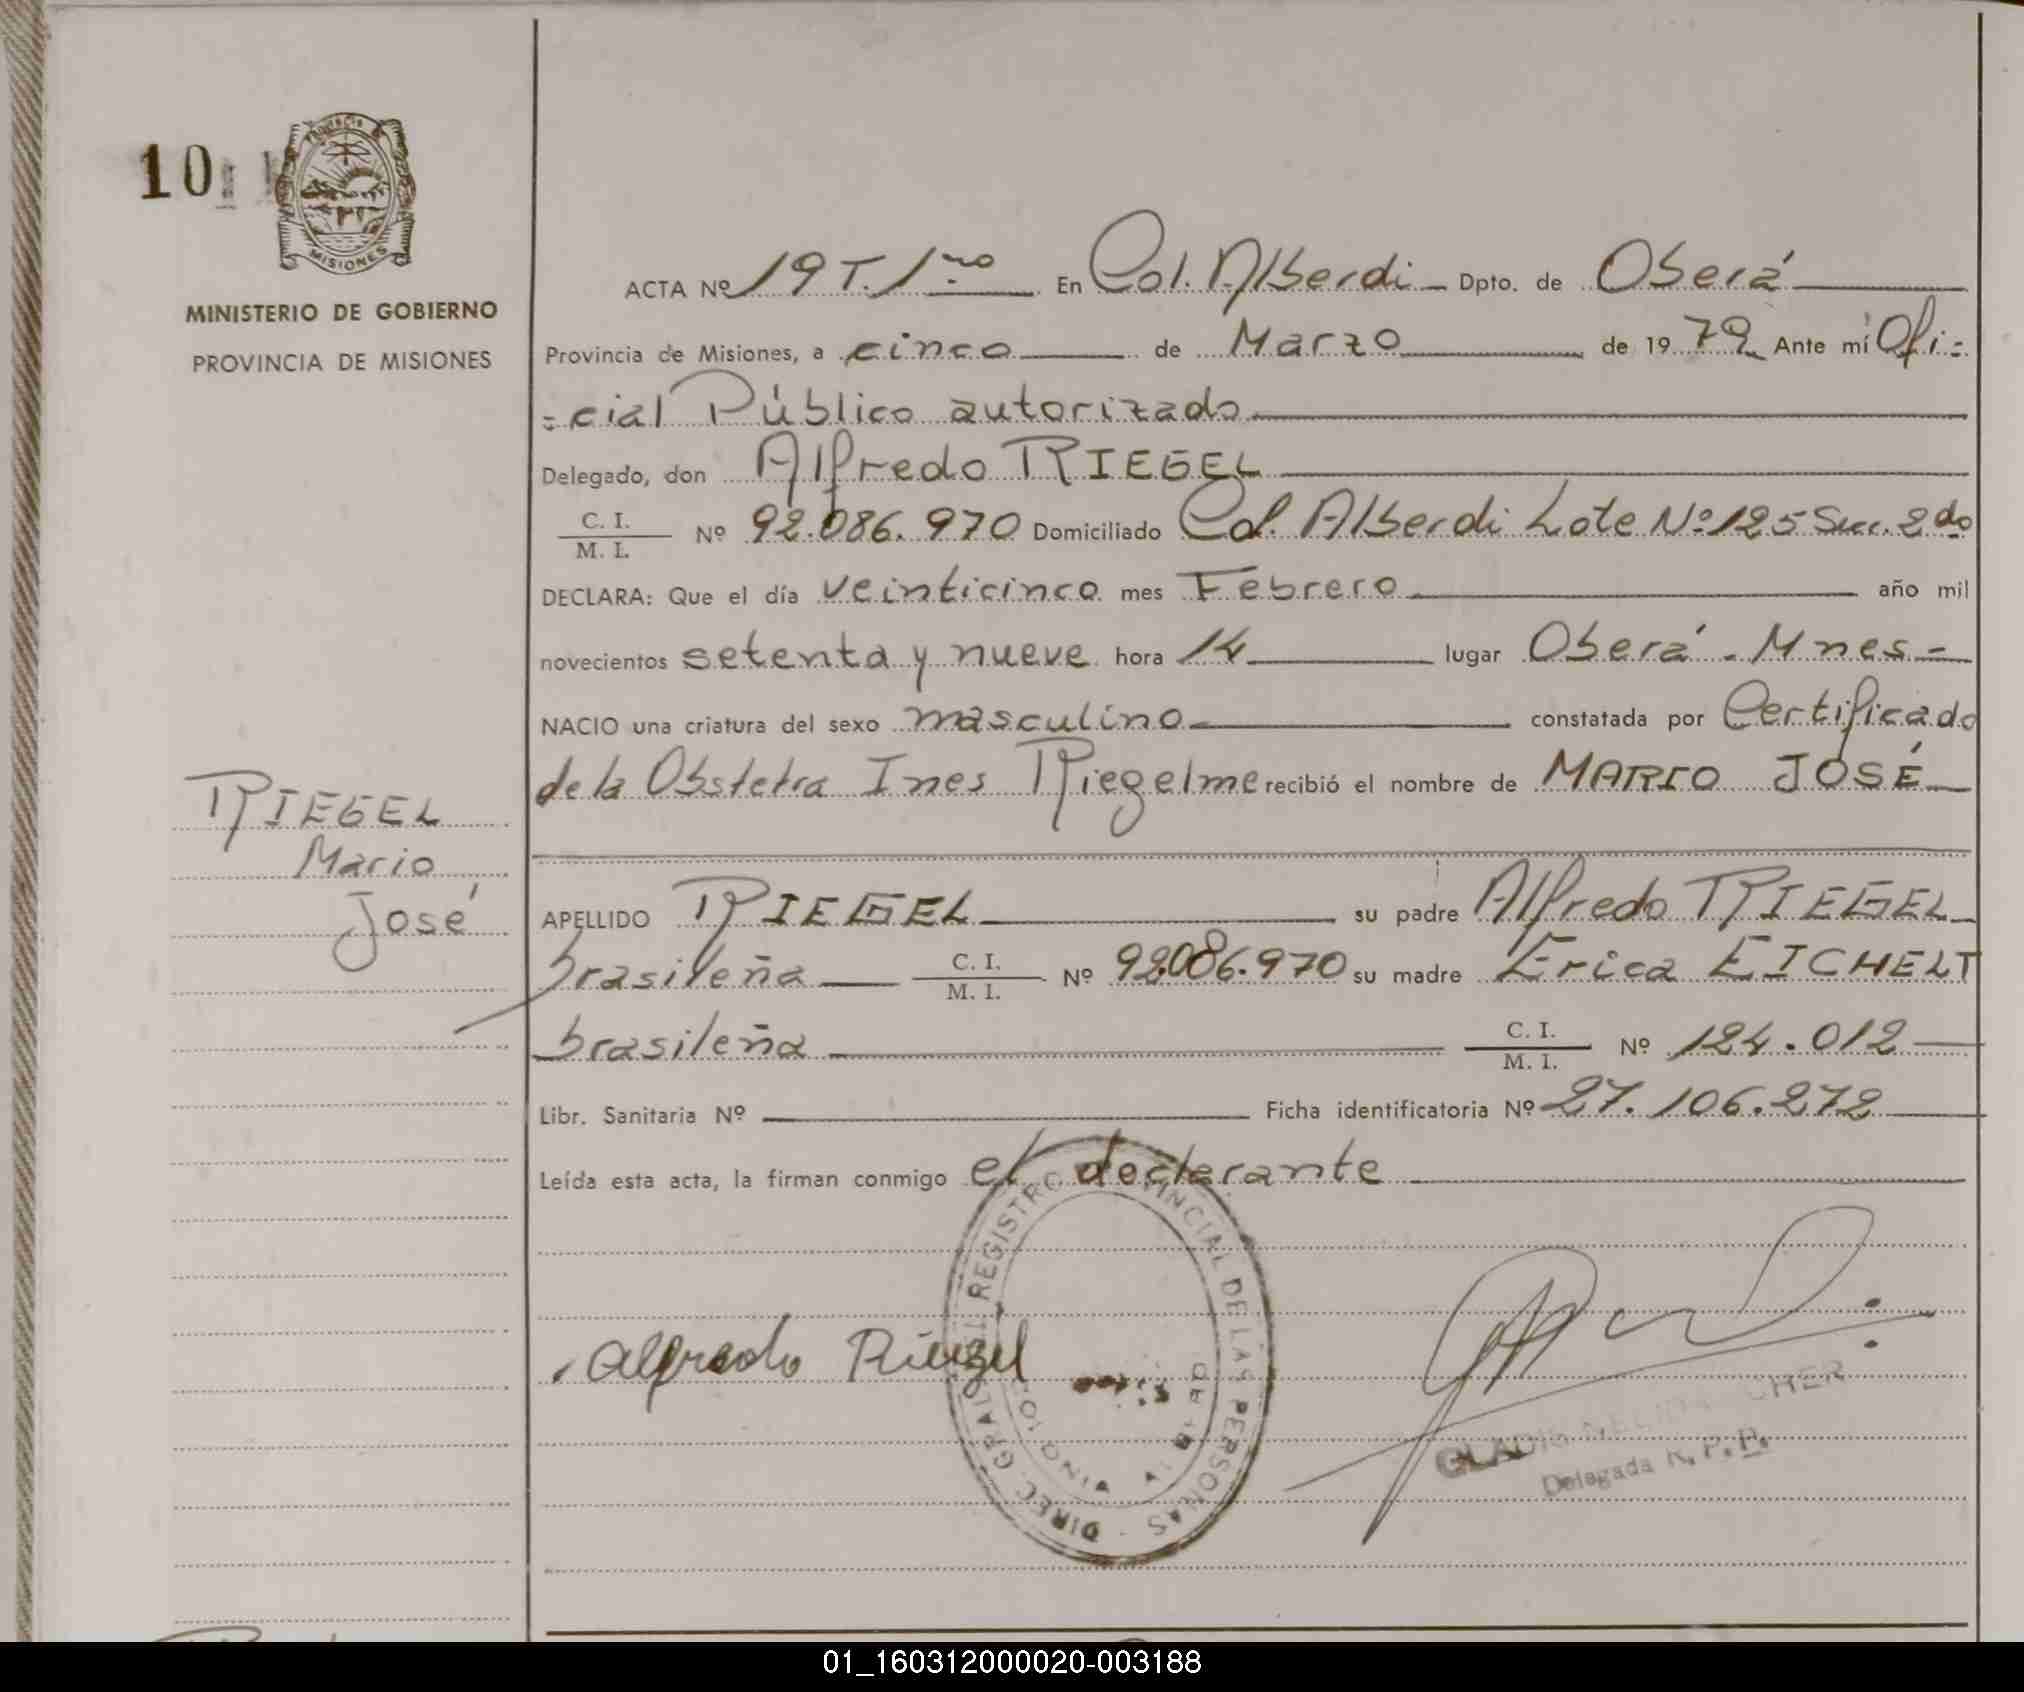 10
Provincia de
MISIONES
MINISTERIO DE GOBIERNO
PROVINCIA DE MISIONES
RIEGEL
Mario
José
ACTA Nº 19 T. 1ro En Col. Alberdi Dpto. de Oberá
Provincia de Misiones, a cinco de Marzo de 1979 Ante mí Ofi=
=cial Público autorizado
Delegado, don Alfredo RIEGEL
C. I.
M. I. Nº 92.086.970 Domiciliado Col. Alberdi Lote Nº 125 Secc. 2da
DECLARA: Que el día veinticinco mes Febrero año mil
novecientos setenta y nueve hora 14 lugar Oberá - Mnes -
NACIO una criatura del sexo masculino constatada por Certificado
de la Obstetra Ines Riegelme recibió el nombre de MARIO JOSÉ
APELLIDO RIEGEL su padre Alfredo RIEGEL
brasileña C. I.
M. I. Nº 92.086.970 su madre Erica EICHELT
brasileña C. I.
M. I. Nº 124.012
Libr. Sanitaria Nº Ficha identificatoria Nº 27.106.272
Leída esta acta, la firman conmigo el declarante
Alfredo Riegel
DIREC. GRAL. DEL REGISTRO PROVINCIAL DE LAS PERSONAS
GLADIS
Delegada R. P. P.
01_160312000020-003188